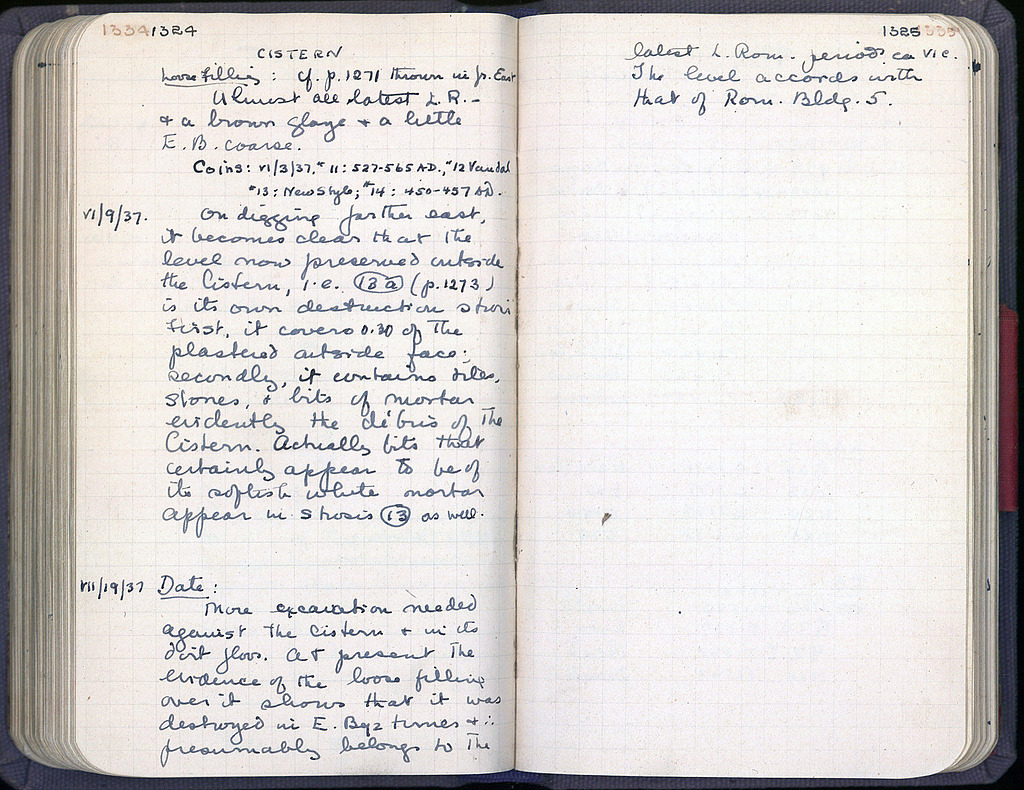 1334 1324
CISTERN
Loose filling: cf. p. 1271 thrown in fr. East
Almost all latest L.R. -
+ a brown glaze + a little
E.B. coarse.
Coins: VI/3/37, #11: 527-565 AD., #12 Vandal
#13: New Style; #14: 450-457 AD.
VI/9/37. On digging farther east,
it becomes clear that the
level now preserved outside
the Cistern, i.e. 13a (p. 1273)
is its own destruction
First, it covers 0.30 of the
plastered outside face;
secondly, it contains tiles,
stones, & bits of mortar
evidently the débris of the
Cistern. Actually bits that
certainly appear to be of
its softish white mortar
appear in strosis 13 as well.
VII/19/37 Date:
More excavation needed
against the Cistern + in its
dirt floor. At present the
evidence of the loose filling
over it shows that it was
destroyed in E. Byz times + ∴
presumably belongs to the
1325
latest L. Rom. period ca VI c.
The level accords with
that of Rom. Bldg. 5.